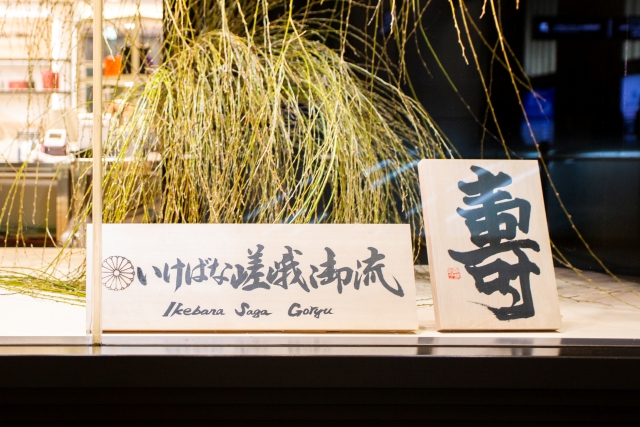 いけばな嵯峨御流
Ikebana Saga Goryu
寿